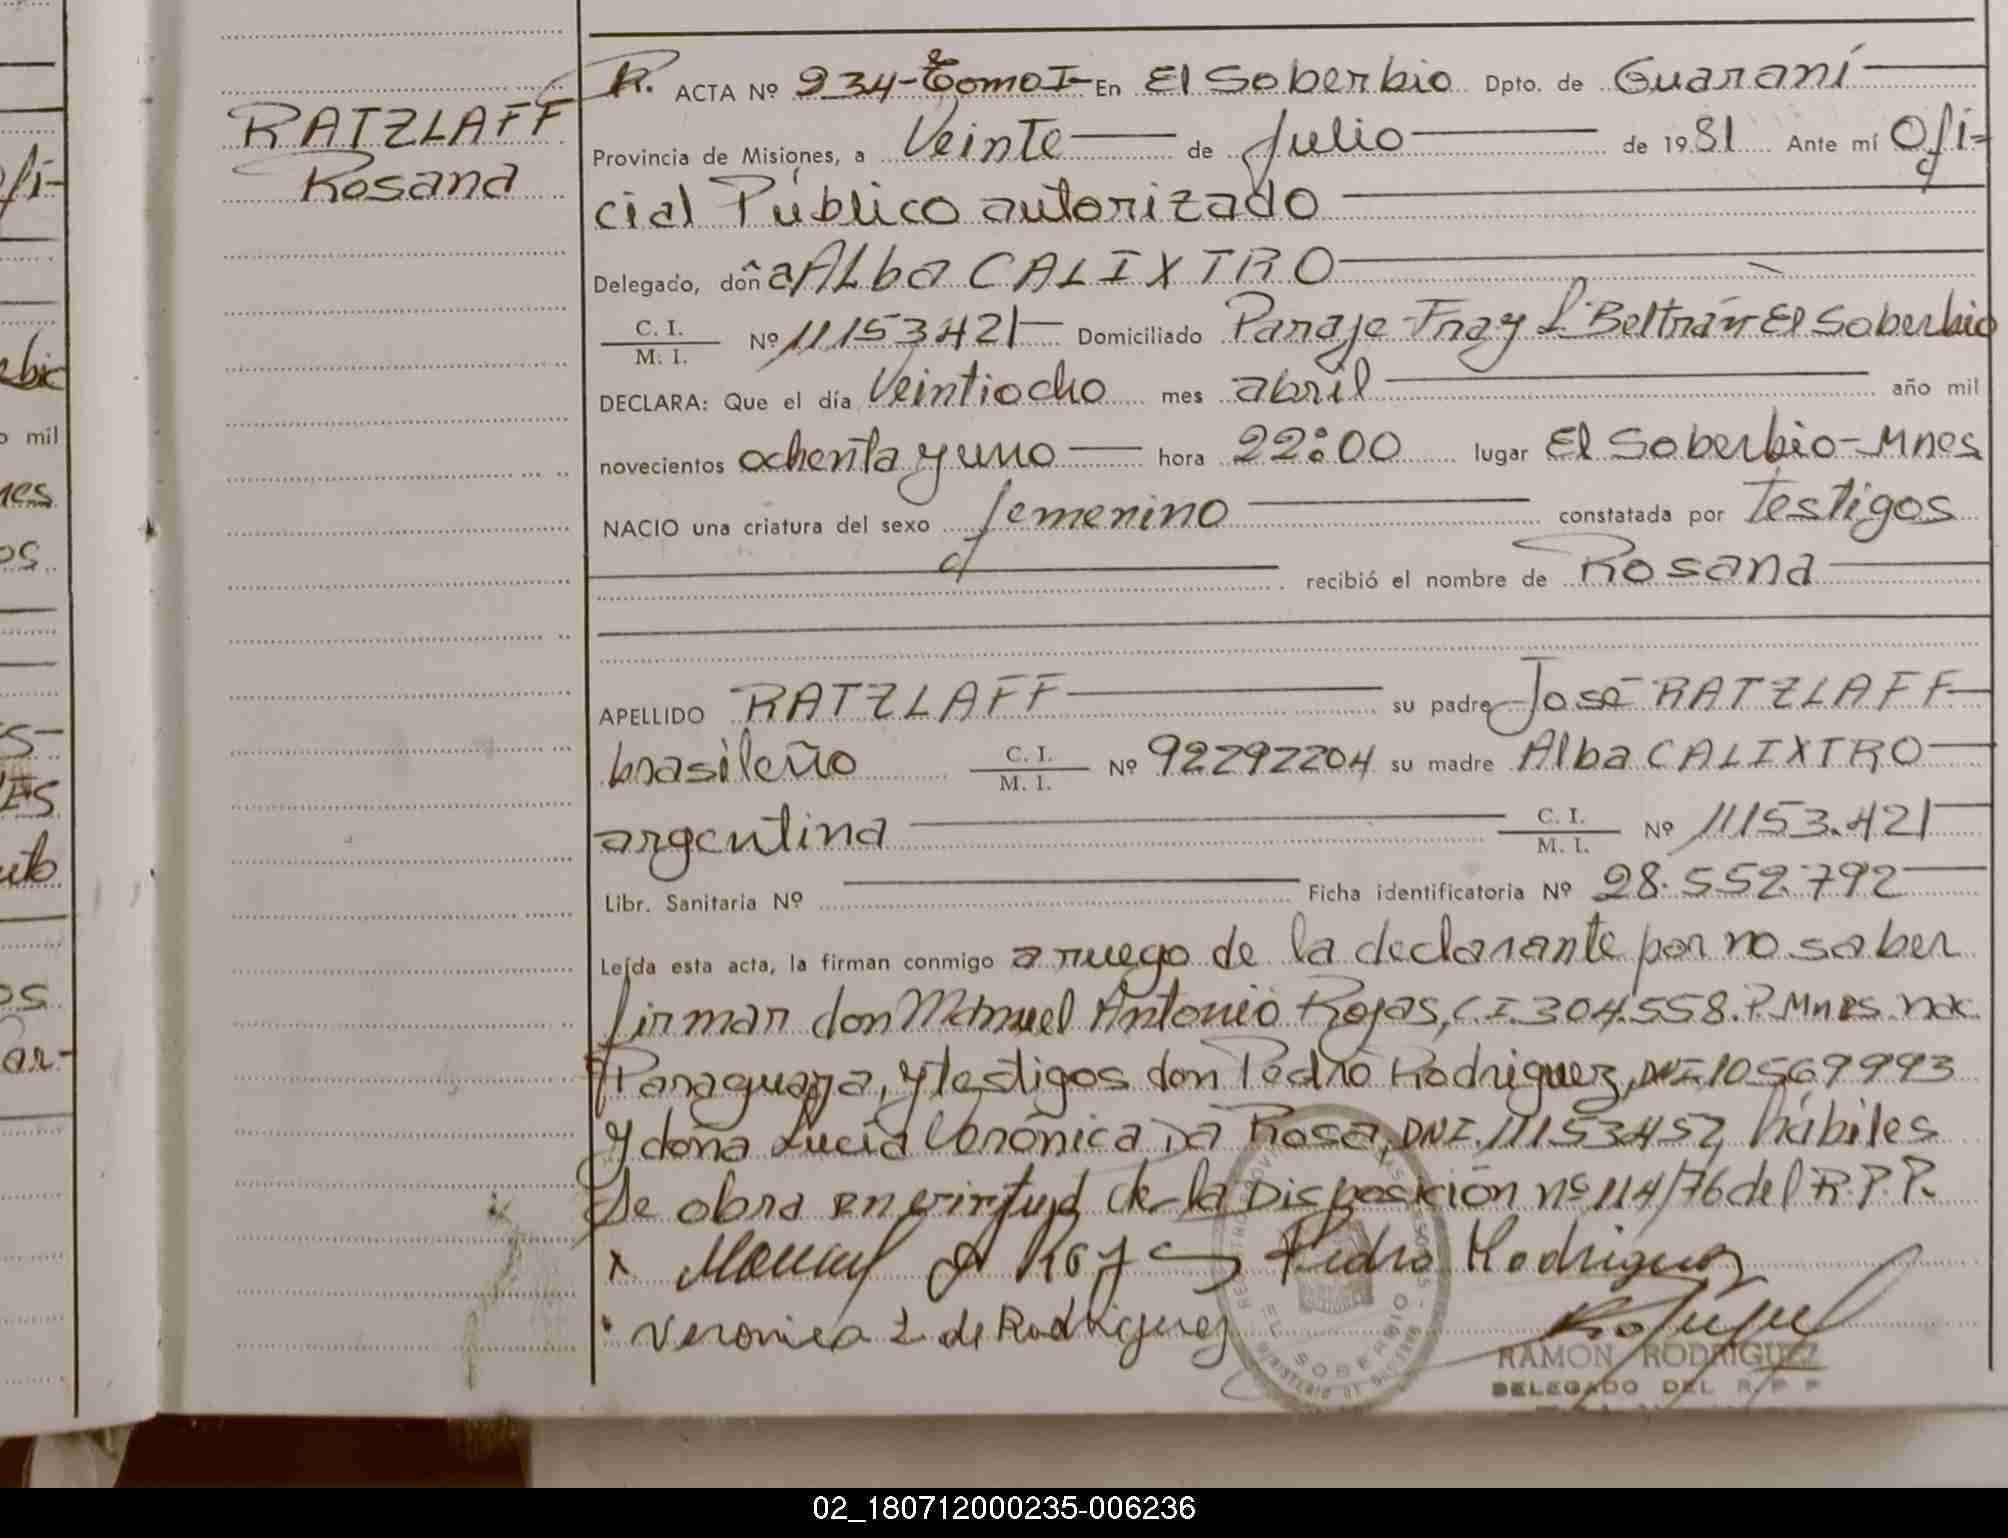 RATZLAFF
Rosana
R. ACTA Nº 234-Tomo I- En El Soberbio Dpto. de Guaraní
Provincia de Misiones, a Veinte de Julio de 1981 Ante mí Ofi-
cial Público autorizado
Delegado, doña Alba CALIXTRO
C. I. / M. I. Nº 11153421 Domiciliado Paraje Fray L. Beltrán El Soberbio
DECLARA: Que el día Veintiocho mes abril año mil
novecientos ochenta y uno hora 22:00 lugar El Soberbio-Mnes
NACIO una criatura del sexo femenino constatada por Testigos
recibió el nombre de Rosana
APELLIDO RATZLAFF su padre José RATZLAFF
brasileño C. I. / M. I. Nº 92292204 su madre Alba CALIXTRO
argentina C. I. / M. I. Nº 11153.421
Libr. Sanitaria Nº Ficha identificatoria Nº 28.552.792
Leída esta acta, la firman conmigo a ruego de la declarante por no saber
firmar don Manuel Antonio Rojas, C.I. 304.558. P. Mnes. nac.
Paraguaya, y testigos don Pedro Rodriguez, DNI 10569993
y doña Lucía Verónica Da Rosa, DNI. 11153457, hábiles
De obra en virtud de la Disposición nº 114/76 del R.P.P.
x Manuel A Rojas Pedro Rodriguez
Veronica L de Rodriguez
EL SOBERBIO
RAMON RODRIGUEZ
DELEGADO DEL R P P
ofi-
mil
nes
os
ar-
02_180712000235-006236